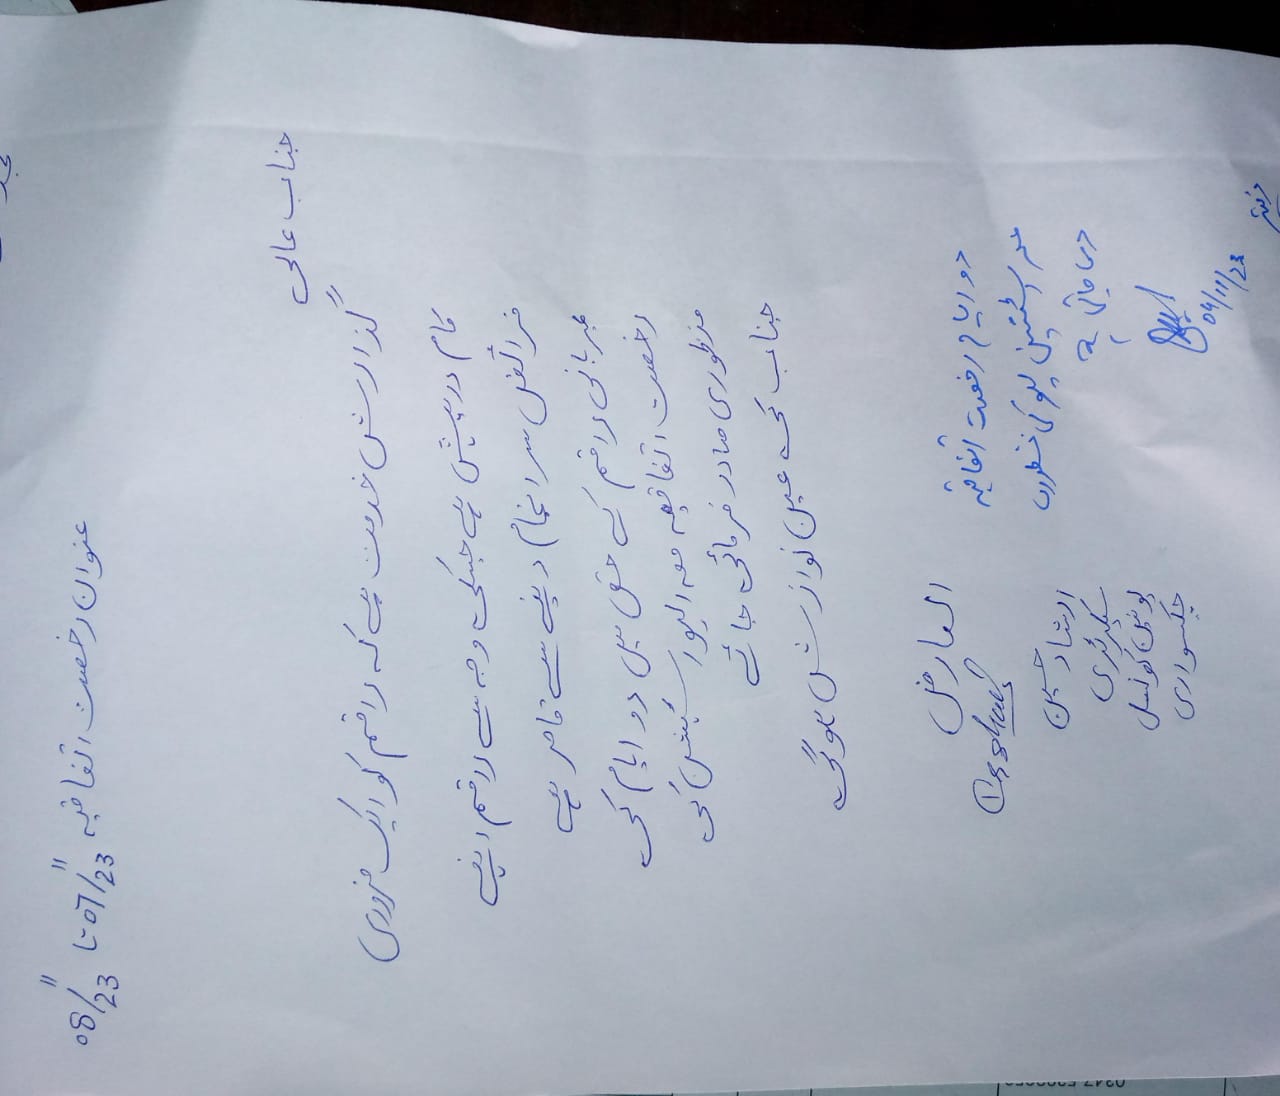 عنوان رخصت اتفاقیہ 07/11/23 تا 08/11/23
جناب عالی
گذارش خدمت ہے کہ راقم کو ایک ضروری
کام درپیش ہے جسکی وجہ سے راقم اپنے
فرائض سر انجام دینے سے قاصر ہے
مہربانی راقم کے حق میں دو ایام کی
رخصت اتفاقیہ معہ اسٹیشن کی
منظوری صادر فرمائی جائے
جناب کی عین نوازش ہوگی
العارض
ارشاد حسین
سیکرٹری
یونین کونسل
چکسواری
دو ایام رخصت اتفاقیہ
اسٹیشن لیو کی منظوری
دی جاتی ہے
04/11/23